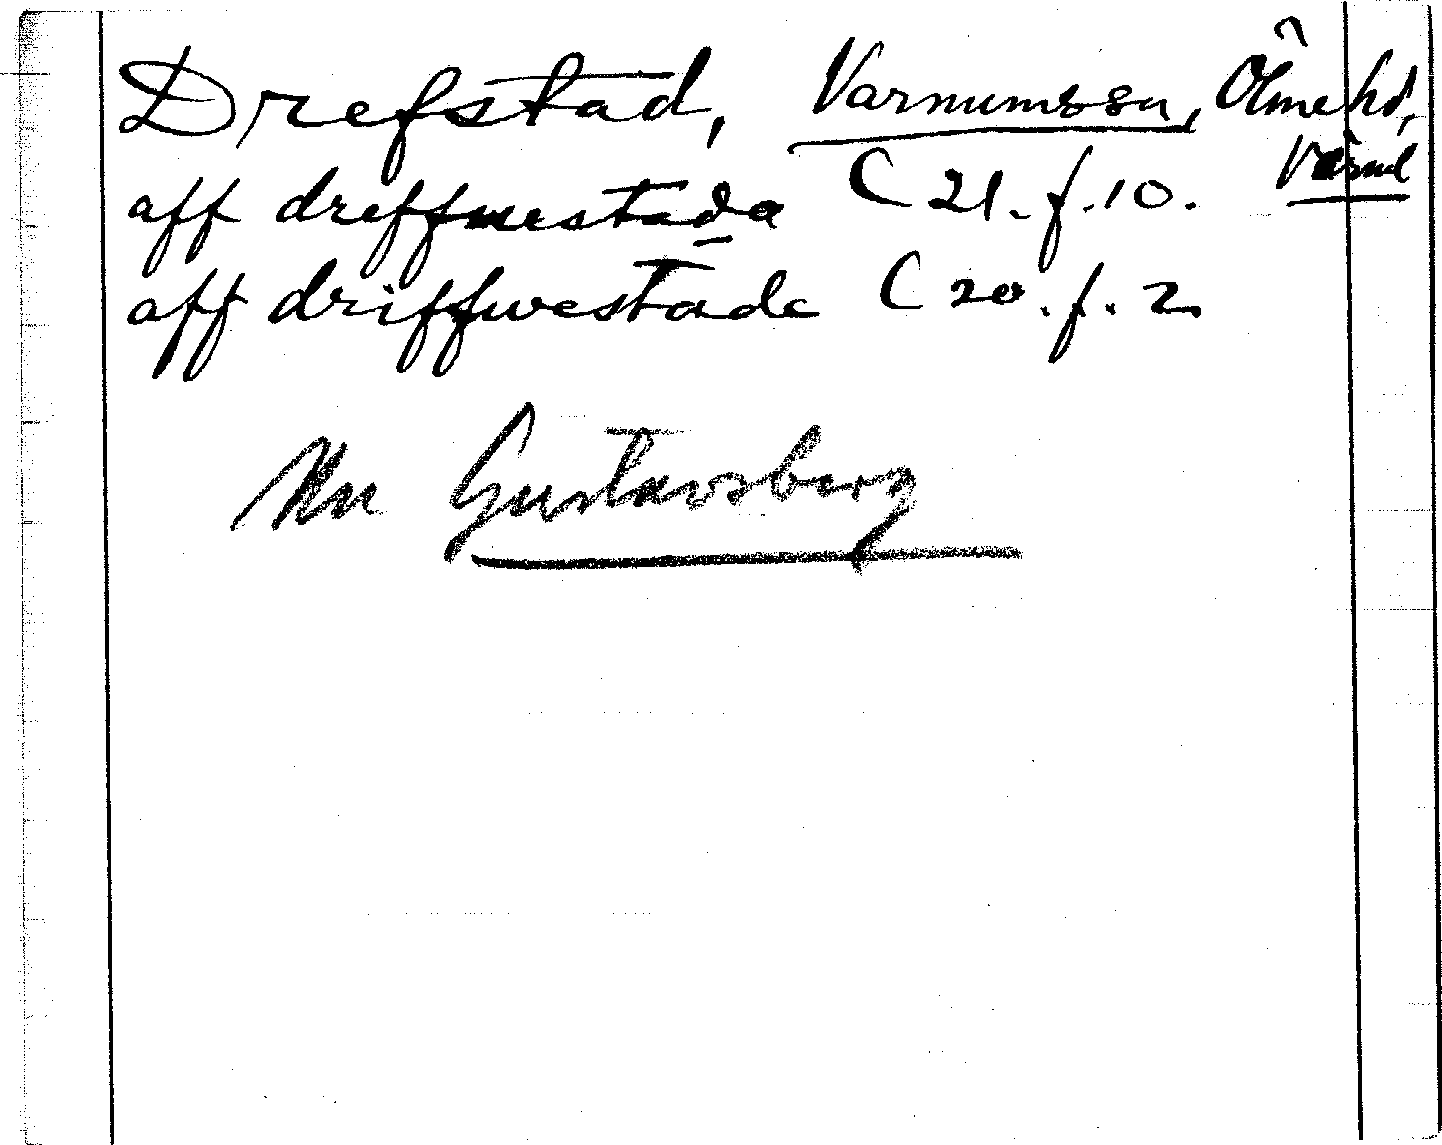 Drefstad, Varnumssn, Ölme hd, Värml
aff dreffuestada C 21. f. 10.
aff driffwestade C 20. f. 2
Nu Gustavsberg